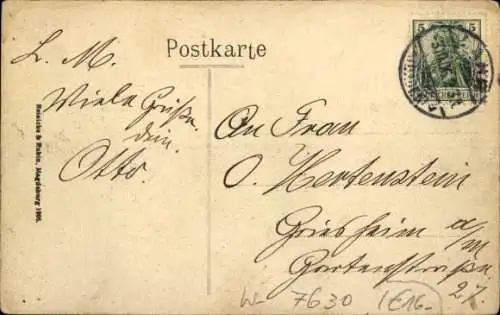 Postkarte
5 5
L. M.
Viele Grüße.
dein.
Otto.
Reinicke & Rubin, Magdeburg 1906.
An Frau
O. Hertenstein
Griesheim a/m
Gartenstraße
27.
7630 1E16-